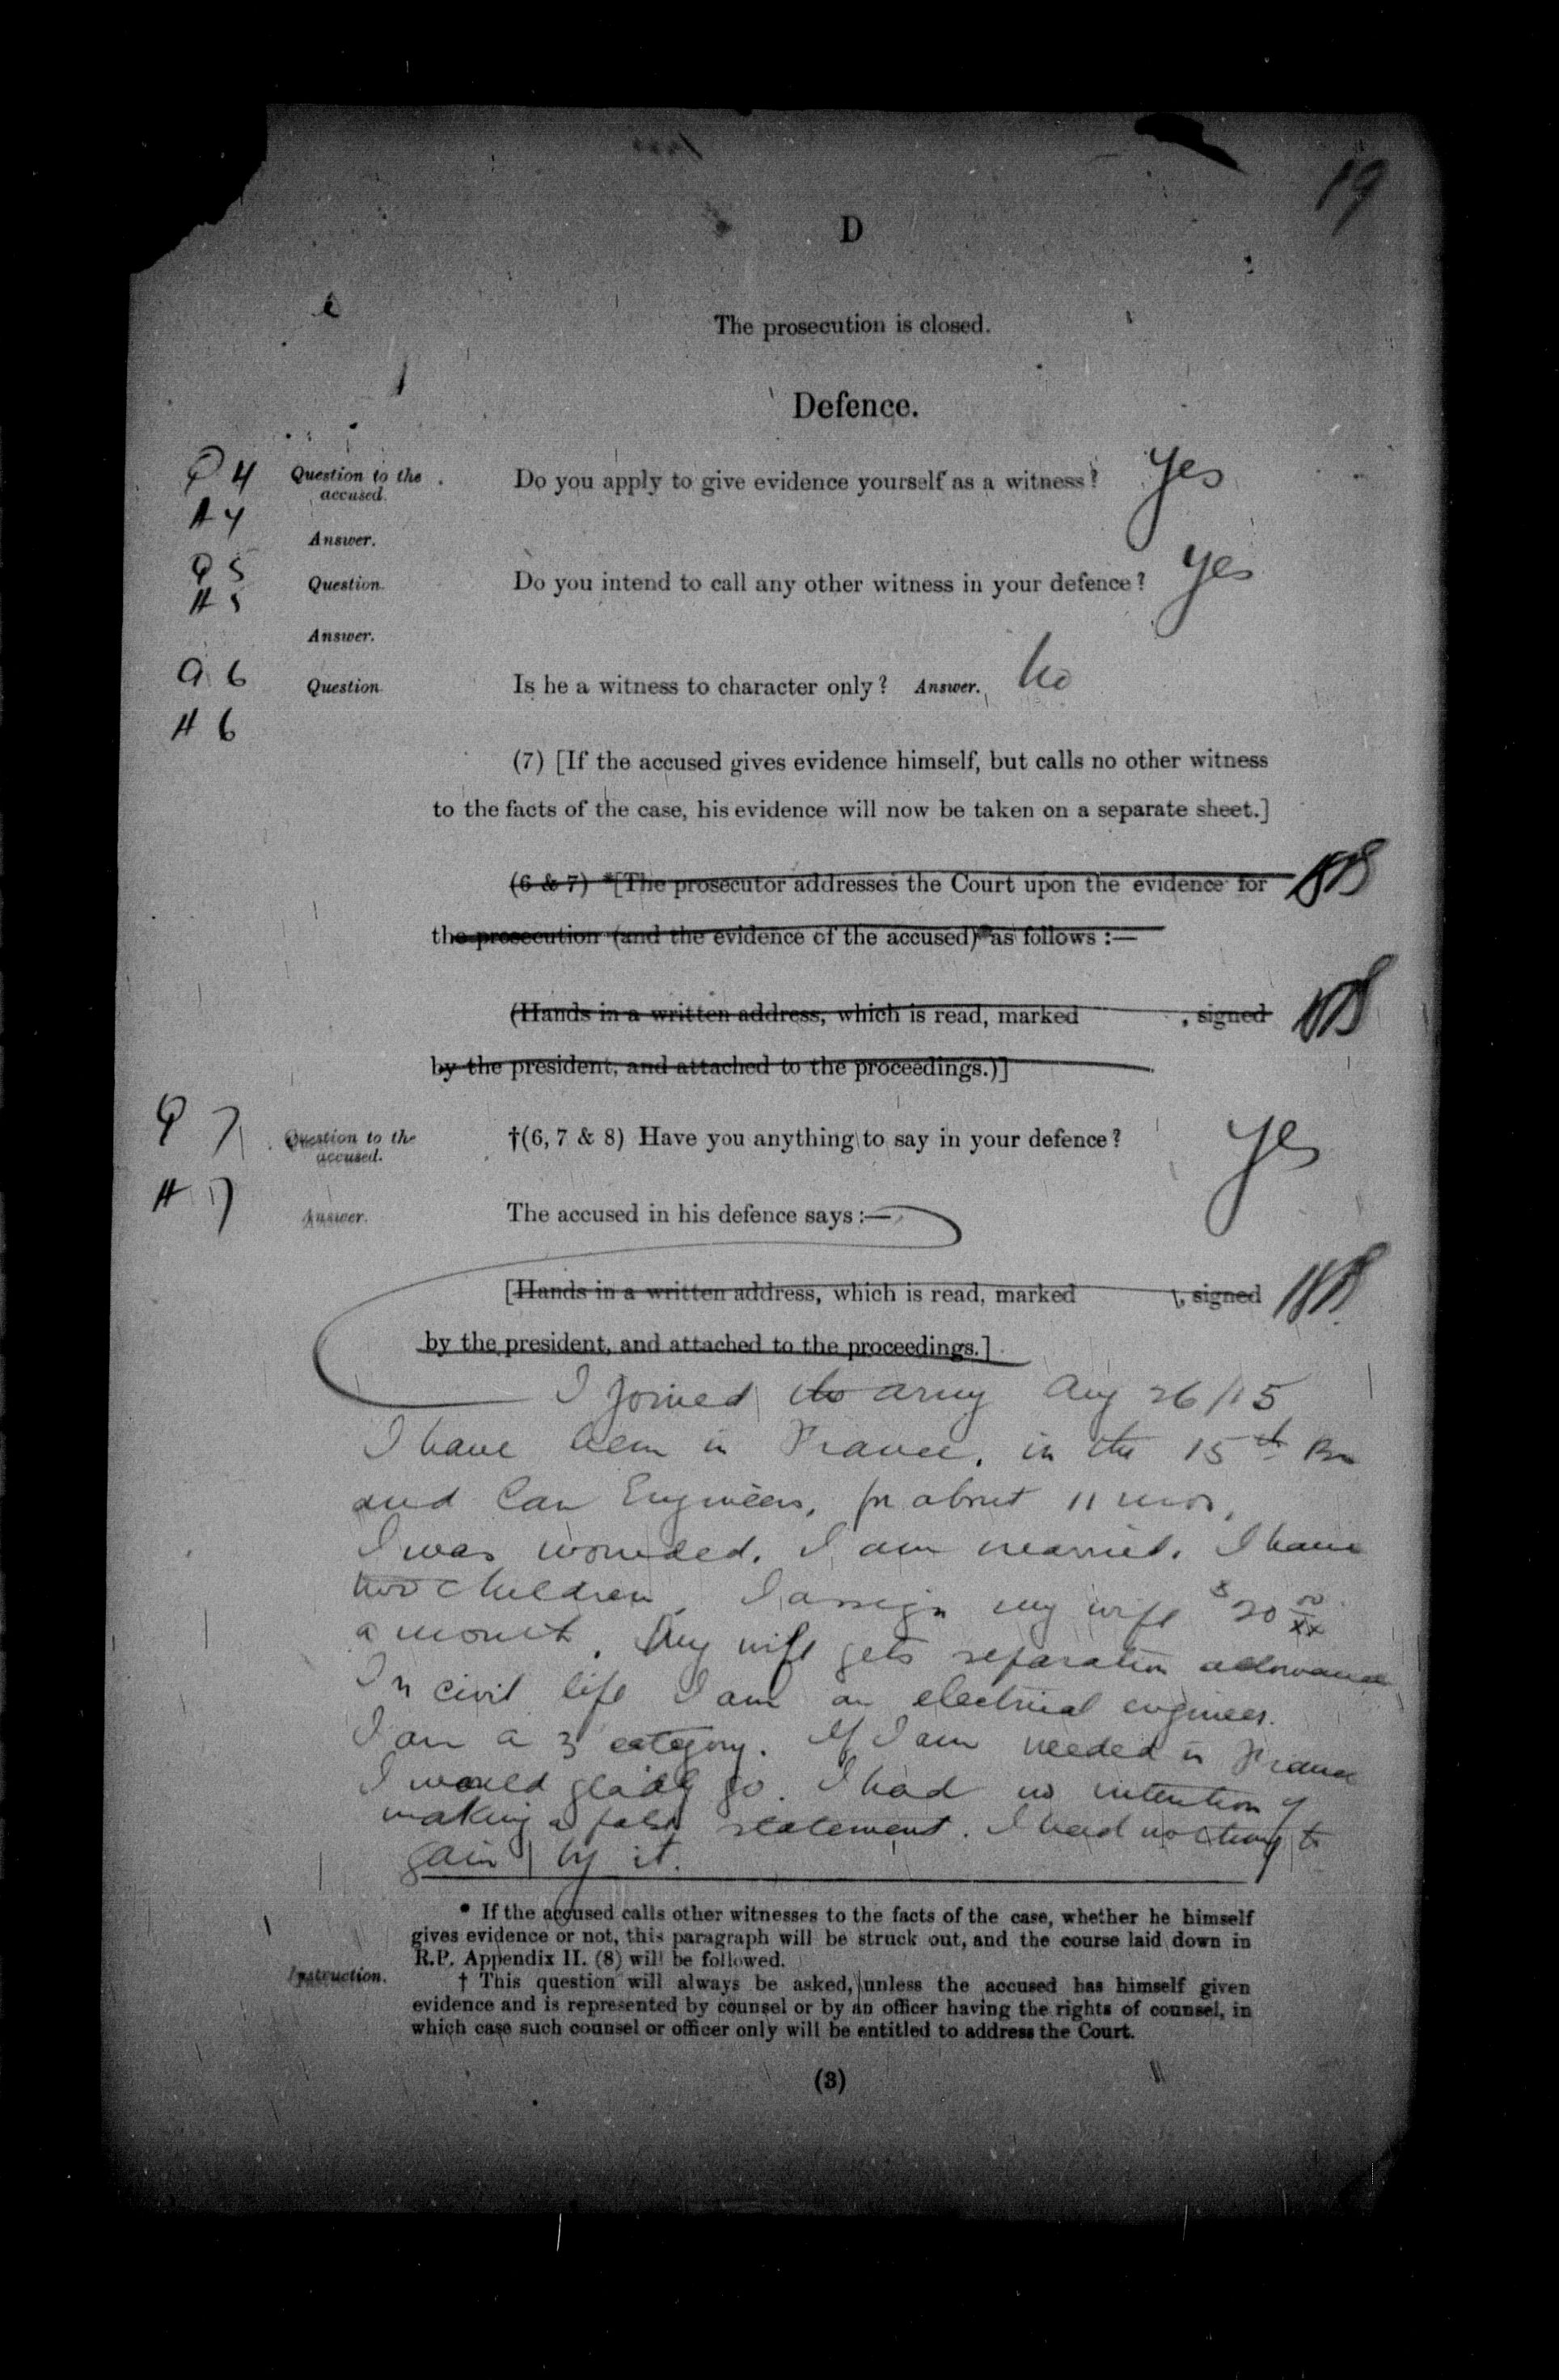 19
D
The prosecution is closed.
Defence.
Q 4 Question to the accused. Do you apply to give evidence yourself as a witness? Yes
A 4 Answer.
Q 5 Question. Do you intend to call any other witness in your defence? Yes
A 5 Answer.
Q 6 Question. Is he a witness to character only? Answer. No
A 6
(7) [If the accused gives evidence himself, but calls no other witness
to the facts of the case, his evidence will now be taken on a separate sheet.]
(6 & 7) *[The prosecutor addresses the Court upon the evidence for
the prosecution (and the evidence of the accused) as follows :—
(Hands in a written address, which is read, marked , signed
by the president, and attached to the proceedings.)]
Q 7 Question to the accused. †(6, 7 & 8) Have you anything to say in your defence? Yes
A 7 Answer. The accused in his defence says :—
[Hands in a written address, which is read, marked , signed
by the president, and attached to the proceedings.]
I joined the army Aug 26/15
I have been in France, in the 15th Bn
and Can Engineers, for about 11 mos.
I was wounded. I am married. I have
two children. I assign my wife $20 00/xx
a month. My wife gets separation allowance
In civil life I am an electrical engineer.
I am a 3 category. If I am needed in France
I would gladly go. I had no intention of
making a false statement. I had nothing to
gain by it.
* If the accused calls other witnesses to the facts of the case, whether he himself
gives evidence or not, this paragraph will be struck out, and the course laid down in
R.P. Appendix II. (8) will be followed.
Instruction. † This question will always be asked, unless the accused has himself given
evidence and is represented by counsel or by an officer having the rights of counsel, in
which case such counsel or officer only will be entitled to address the Court.
(3)